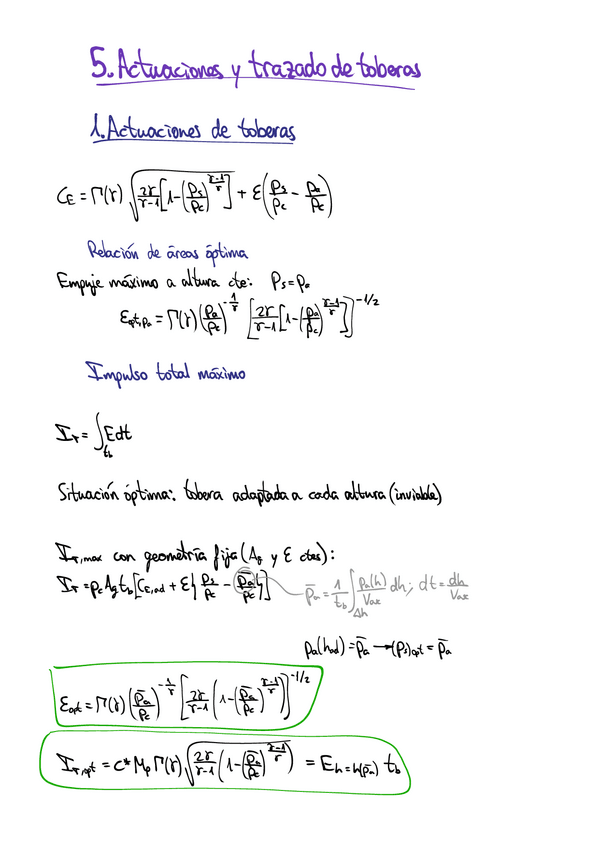 5. Actuaciones y trazado de toberas
1. Actuaciones de toberas
C_E = Γ(γ) √(2γ/(γ-1) [1-(p_s/p_c)^((γ-1)/γ)]) + ε(p_s/p_c - p_a/p_c)
Relación de áreas óptima
Empuje máximo a altura cte: p_s = p_a
ε_opt,pa = Γ(γ) (p_a/p_c)^(-1/γ) [2γ/(γ-1) [1-(p_a/p_c)^((γ-1)/γ)]]^(-1/2)
Impulso total máximo
I_T = ∫_tb E dt
Situación óptima: tobera adaptada a cada altura (inviable)
I_T,max con geometría fija (A_g y ε ctes):
I_T = p_c A_g t_b [C_E,ad + ε{p_s/p_c - p̄_a/p_c}] p̄_a = 1/t_b ∫_Δh p_a(h)/V_ax dh; dt = dh/V_ax
p_a(h_ad) = p̄_a → (p_s)_opt = p̄_a
ε_opt = Γ(γ) (p̄_a/p_c)^(-1/γ) [2γ/(γ-1) (1-(p̄_a/p_c)^((γ-1)/γ))]^(-1/2)
I_T,opt = c* M_p Γ(γ) √(2γ/(γ-1) (1-(p̄_a/p_c)^((γ-1)/γ))) = E_h=h(p̄_a) t_b